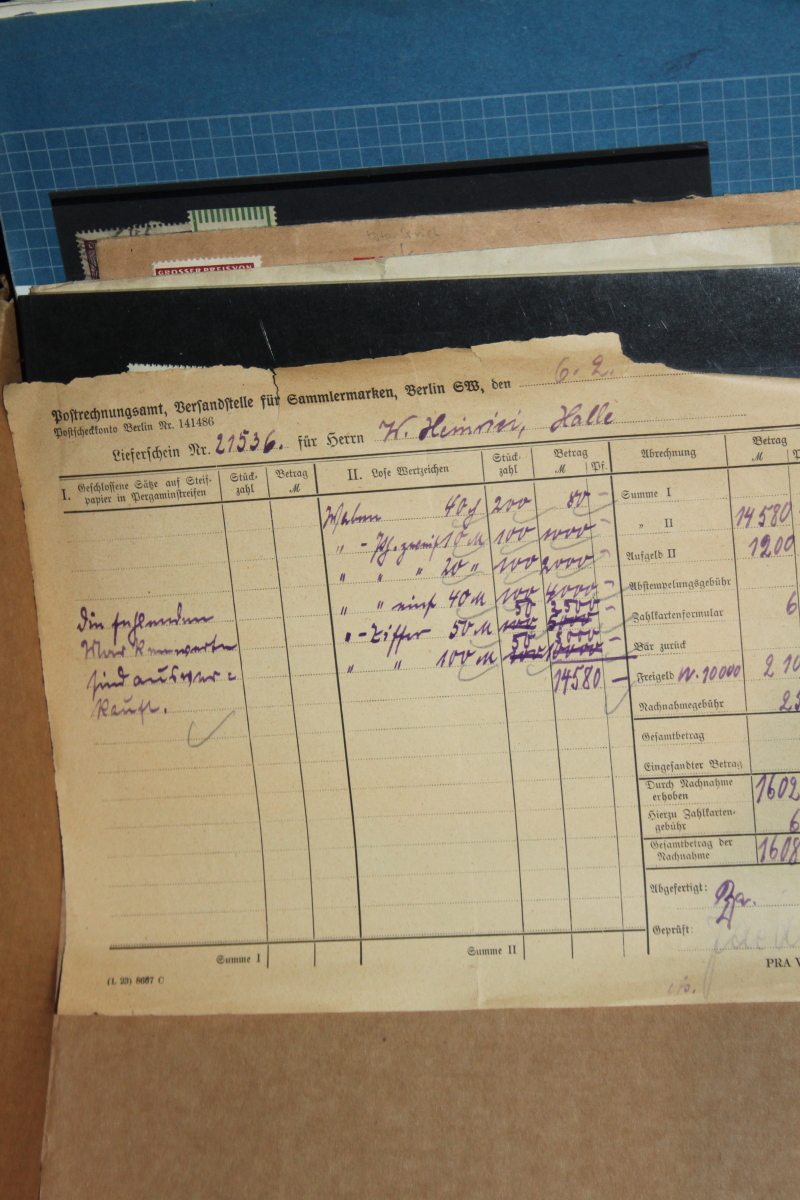 GROSSER PREIS VON
Postrechnungsamt, Versandstelle für Sammlermarken, Berlin SW, den 6. 2.
Postscheckkonto Berlin Nr. 141486
Lieferschein Nr. 21536. für Herrn W. Heinrici, Halle
I. Geschlossene Sätze auf Steif-papier in Pergaminstreifen
Stück-zahl
Betrag M
II. Lose Wertzeichen
Stück-zahl
Betrag M Pf.
Abrechnung
Betrag M
Waben 40 200 80 –
" 10 M 100 1000 –
" " " 20 " 100 2000 –
" " einf 40 M 100 4000 –
" - Ziffer 50 M 100 50 5000 2500 –
" " 100 M 100 50 10000 5000 –
14580 –
Die fehlenden
Mark
sind ausver-
kauft.
Summe I
" II 14580
Aufgeld II 1200
Abstempelungsgebühr
Zahlkartenformular 6
Bär zurück
Freigeld W. 10000 210
Nachnahmegebühr 25
Gesamtbetrag
Eingesandter Betrag
Durch Nachnahme erhoben 1602
Hierzu Zahlkarten-gebühr 6
Gesamtbetrag der Nachnahme 1608
Abgefertigt:
Geprüft:
Summe I
Summe II
(1. 23) 8667 C
PRA V